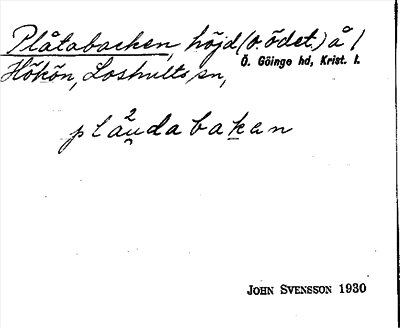 Plåtabacken, höjd (o. ödet.) å /
Ö. Göinge hd, Krist. l.
Hökön, Loshults sn,
plå²u̯dabak̲an
JOHN SVENSSON 1930